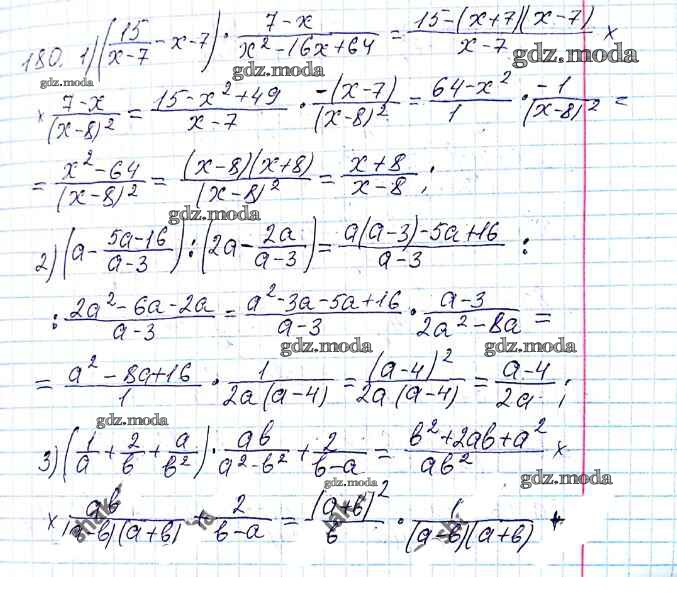 180. 1) (15/(x-7) - x - 7) · (7-x)/(x²-16x+64) = (15-(x+7)(x-7))/(x-7) ×
gdz.moda
gdz.moda
gdz.moda
× (7-x)/(x-8)² = (15-x²+49)/(x-7) · (-(x-7))/(x-8)² = (64-x²)/1 · (-1)/(x-8)² =
= (x²-64)/(x-8)² = ((x-8)(x+8))/(x-8)² = (x+8)/(x-8) ;
gdz.moda
2) (a - (5a-16)/(a-3)) : (2a - 2a/(a-3)) = (a(a-3)-5a+16)/(a-3) :
gdz.moda
: (2a²-6a-2a)/(a-3) = (a²-3a-5a+16)/(a-3) · (a-3)/(2a²-8a) =
gdz.moda
= (a²-8a+16)/1 · 1/(2a(a-4)) = (a-4)²/(2a(a-4)) = (a-4)/(2a) ;
gdz.moda
3) (1/a + 2/в + a/в²) · aв/(a²-в²) + 2/(в-a) = (в²+2aв+a²)/(aв²) ×
gdz.moda
gdz.moda
× aв/((a-в)(a+в)) + 2/(в-a) = (a+в)²/в · 1/((a-в)(a+в)) +